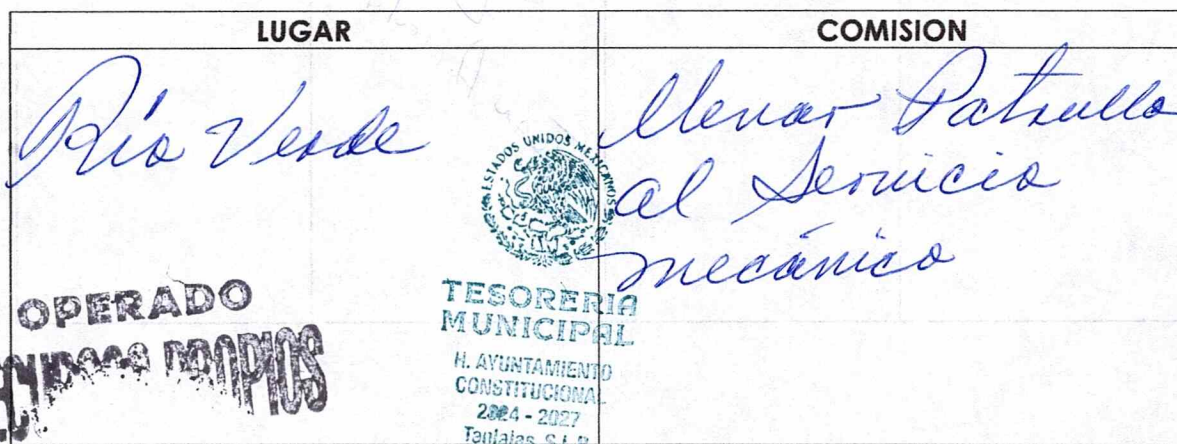 LUGAR
COMISION
Río Verde
llevar Patrulla
al Servicio
mecánico
ESTADOS UNIDOS MEXICANOS
TESORERIA
MUNICIPAL
H. AYUNTAMIENTO
CONSTITUCIONAL
2024 - 2027
Tanlajas, S.L.P.
OPERADO
PROPIOS